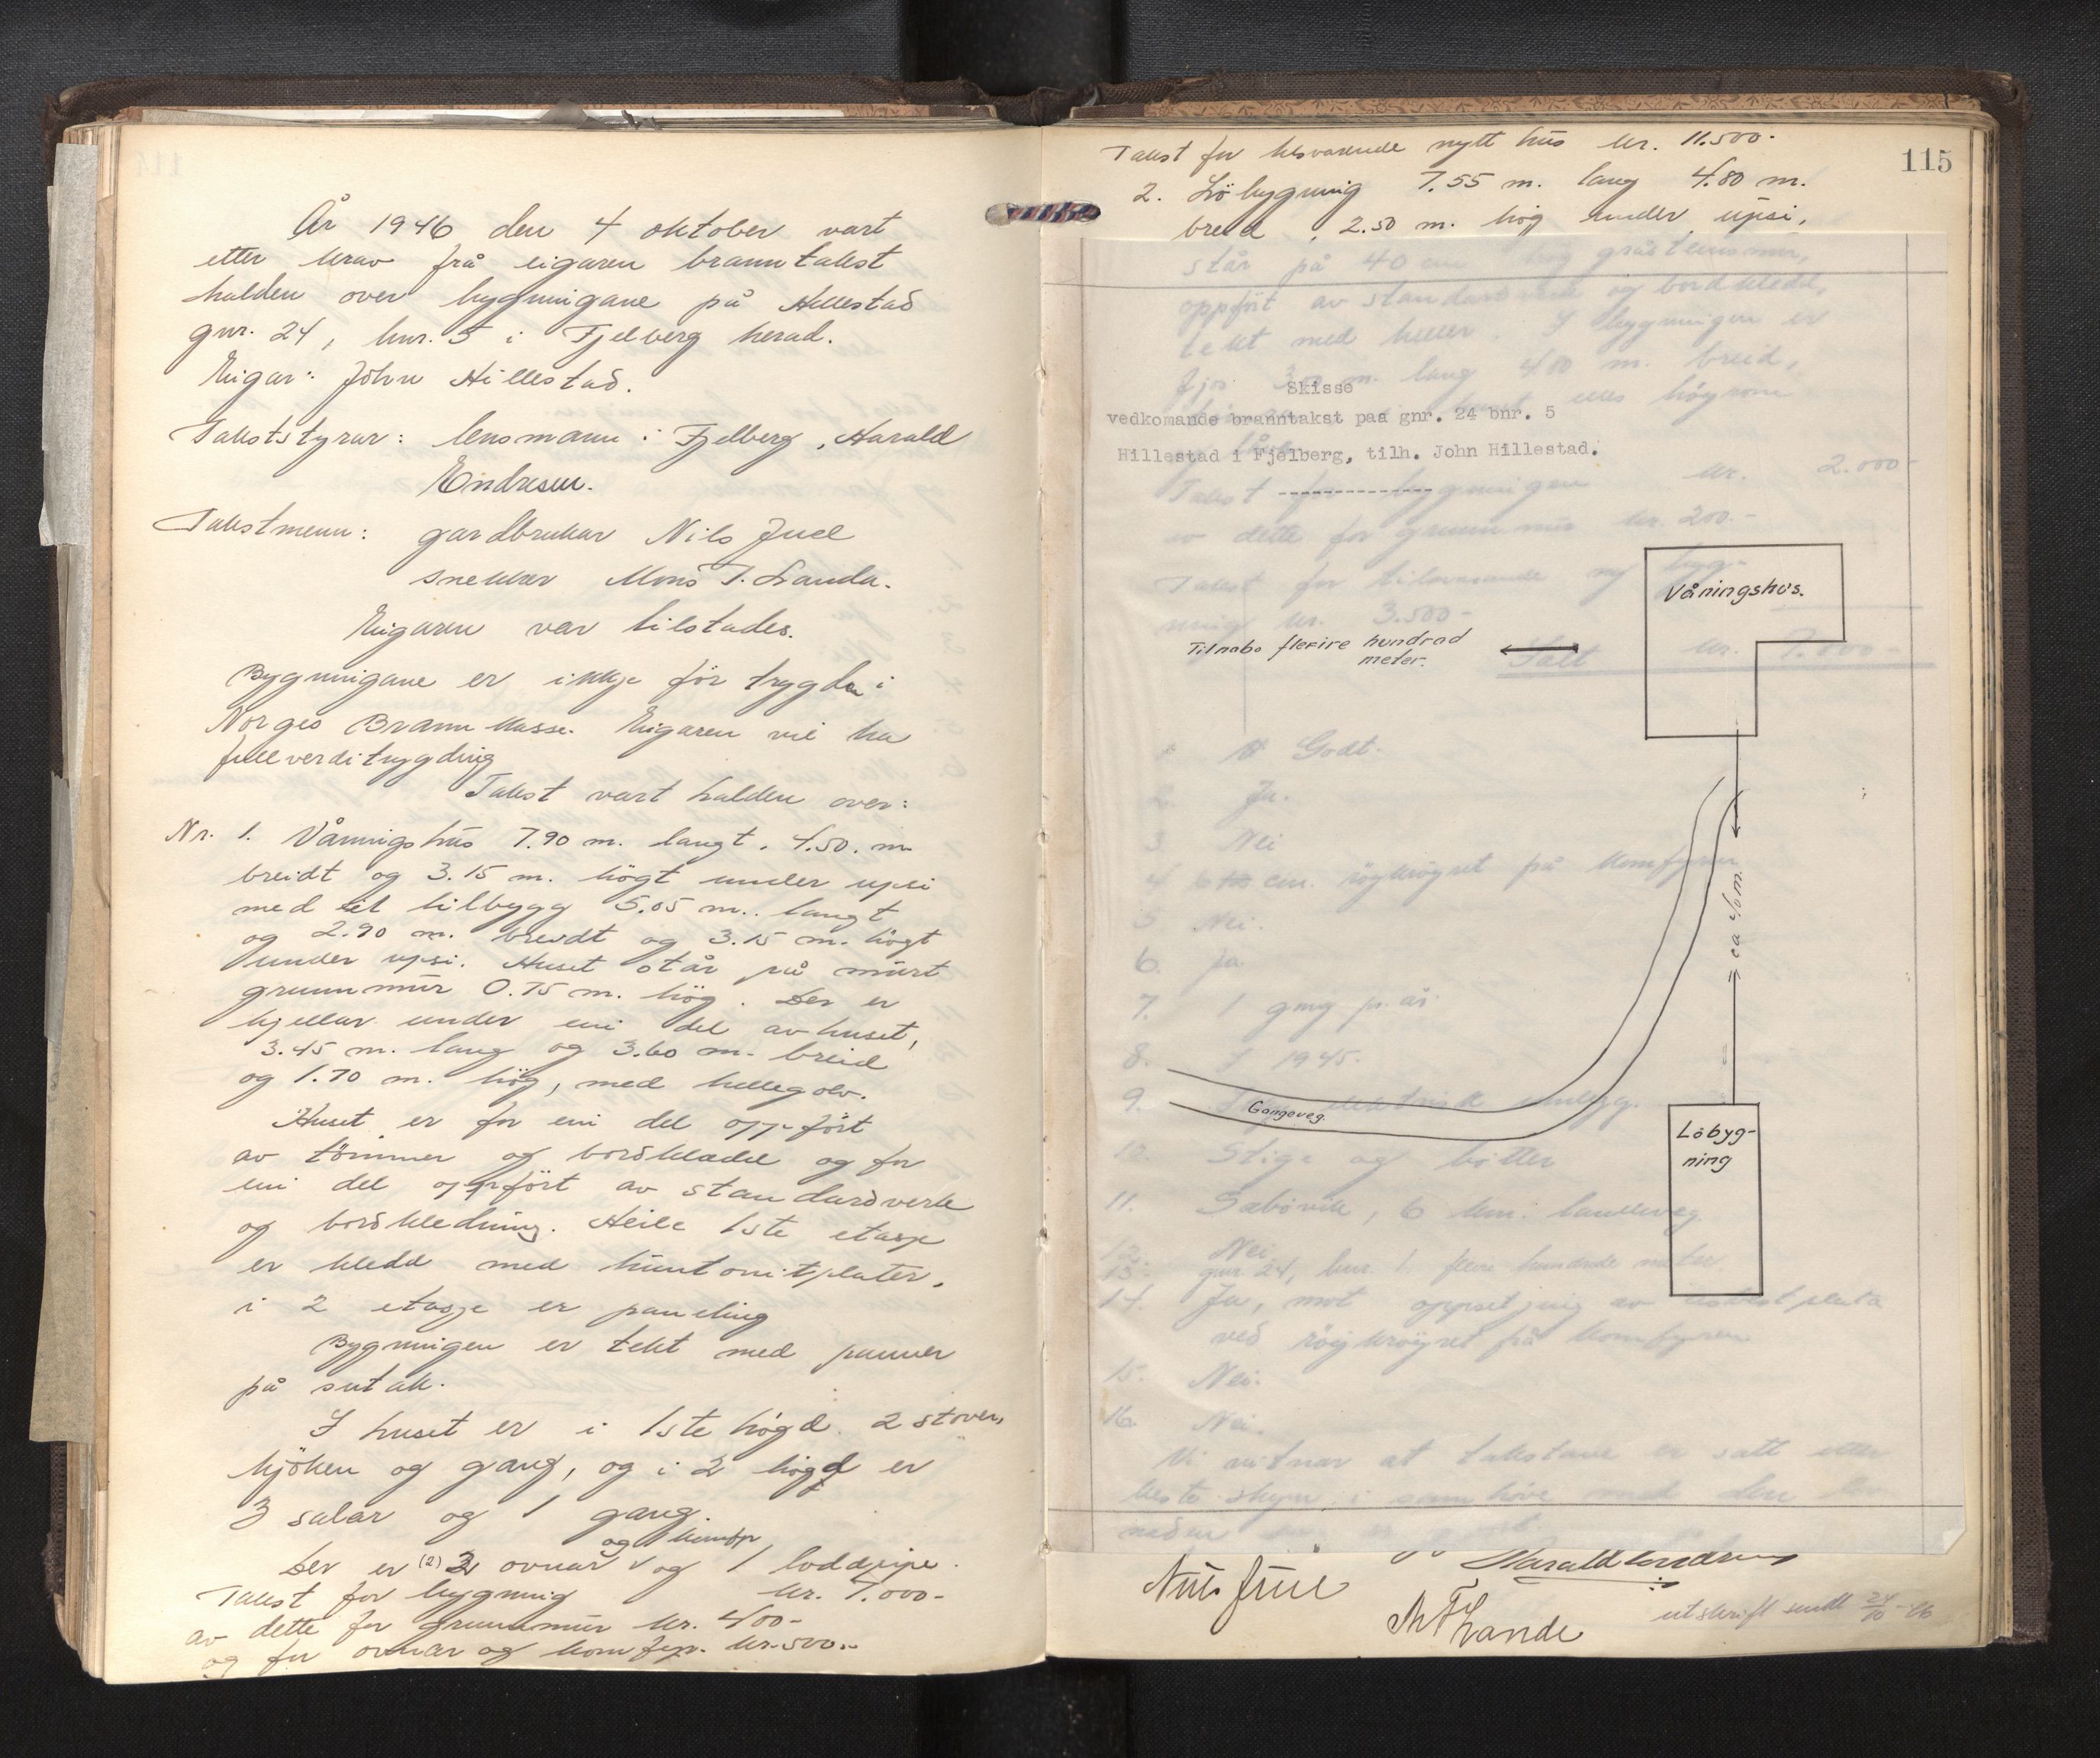 År 1946 den 4 oktober vart
etter krav frå eigaren branntakst
halden over bygningane på Hillestad
gnr. 24, bnr. 5 i Fjelberg herad.
Eigar: John Hillestad.
Takststyrar: lensmann i Fjelberg, Harald
Endresen.
Takstmenn: gardbrukar Nils Juel
snekker Mons T. Landa.
Eigaren var tilstades.
Bygningane er ikkje før trygda i
Norges Brannkasse. Eigaren vil ha
fullverditrygding
Takst vart halden over:
Nr. 1. Våningshus 7.90 m. langt, 4.50. m
breidt og 3.15 m. høgt under upsi
med eit tilbygg 5.05 m. langt
og 2.90 m. breidt og 3.15 m. høgt
under upsi. Huset står på mùrt
grunnmùr 0.75 m. høg. Der er
kjellar under ein del av huset,
3.45 m. lang og 3.60 m. breid
og 1.70 m. høg, med hellegolv.
Huset er for ein del oppført
av tømmer og bordkledd og for
ein del oppført av standardverk
og bordkledning. Heile 1ste etasje
er kledd med huntonitplater,
i 2 etasje er paneling
Bygningen er tekt med panner
på sutak.
I huset er i 1ste høgd 2 stover,
kjøken og gang, og i 2 høgd er
3 salar og 1 gang.
og komfyr
Der er (2) 2 ovnar v og 1 loddpipe.
Takst for bygning kr. 7.000-
av dette for grunnmùr kr. 400-
og for ovnar og komfyr. kr. 500.-
115
Takst for tilsvarande nytt hùs kr. 11.500-
2. Løbygning 7.55 m. lang 4.80 m.
breid, 2.50 m. høg under upsi,
står på 40 cm høg gråsteinsmur,
oppført av standardverk og bordkledd,
tekt med heller. I bygningen er
fjos 3.00 m. lang 4.80 m. breid,
elles høyrom
Skisse
vedkomande branntakst paa gnr. 24 bnr. 5
Hillestad i Fjelberg, tilh. John Hillestad.
--------------
Takst for bygningen kr. 2.000-
av dette for grunnmùr kr. 200.-
Takst for tilsvarande ny byg-
ning kr. 3.500-
Våningshus.
Til nabo fleire hundrad
meter.
Talt kr. 9.000-
1. Godt.
2. Ja.
3. Nei
4. cm. røykrøyret på komfyren
5. Nei.
6. Ja
7. 1 gong pr. år
8. I 1945.
ca 40 m.
9. elektrisk anlegg.
Gangveg.
Løbyg-
ning
10. Stige og bøtter
11. Sæbøvik, 6 km. landeveg
12. Nei
13. gnr 24, bnr. 1. fleire hundrede meter
14. Ja, mot oppsetjing av asbestplata
ved røykrøyret frå komfyren
15. Nei.
16. Nei.
Vi vitnar at takstane er satt etter
beste skjøn i samhøve med den
Harald Endresen
Nils Juel
M T Landa
utskrift sendt 24/10-46